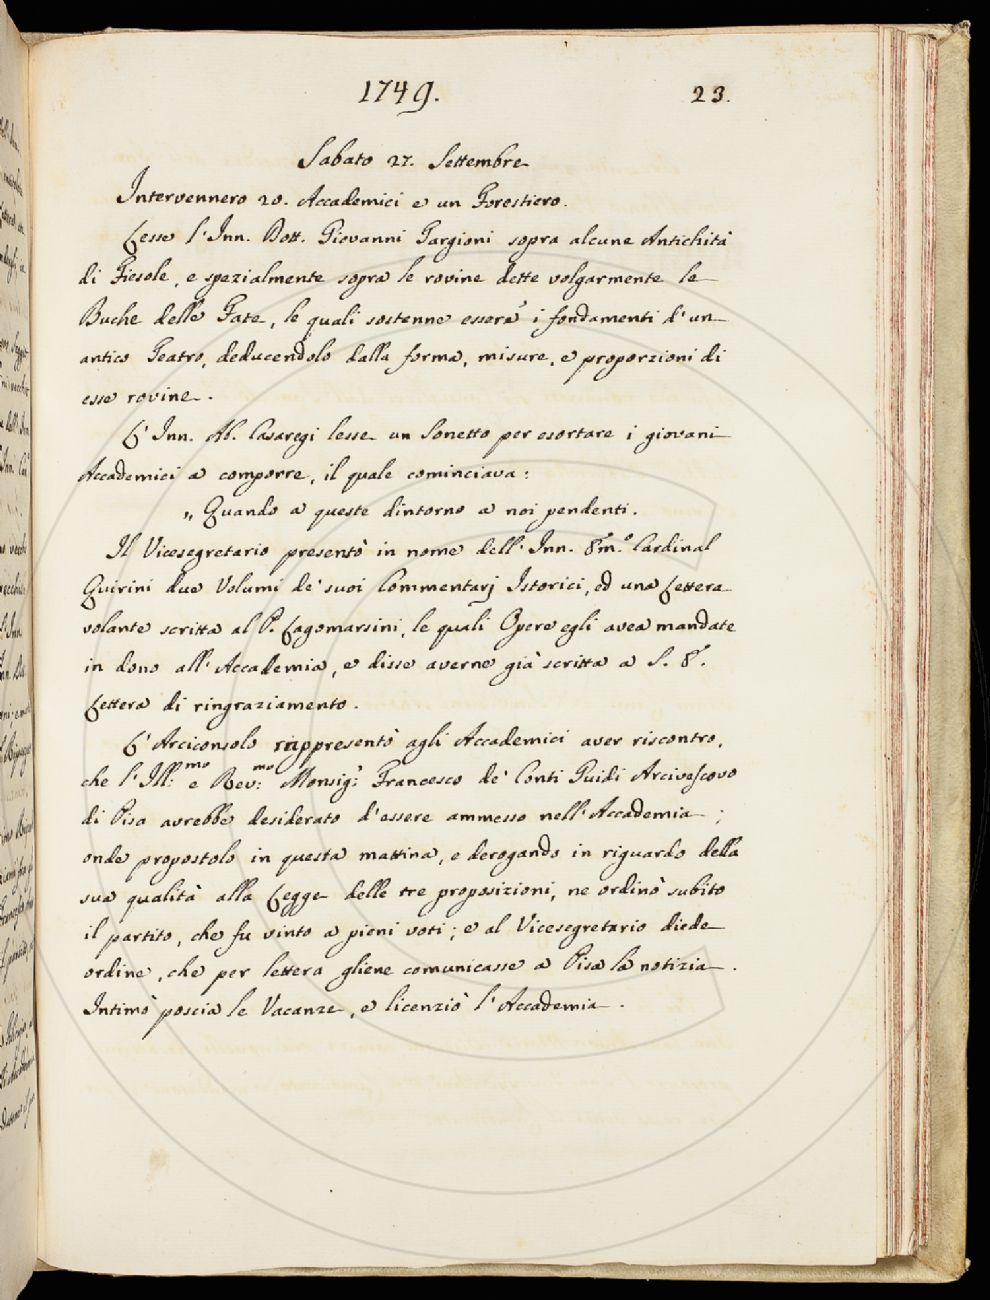 1749.
23.
Sabato 27. Settembre
Intervennero 20. Accademici e un Forestiero.
Lesse l'Inn. Dott. Giovanni Targioni sopra alcune Antichità
di Fiesole, e spezialmente sopra le rovine dette volgarmente le
Buche delle Fate, le quali sostenne essere i fondamenti d'un
antico Teatro, deducendolo dalla forma, misure, e proporzioni di
esse rovine.
L'Inn. Ab. Casaregi lesse un Sonetto per esortare i giovani
Accademici a comporre, il quale cominciava:
„ Quando a queste dintorno a noi pendenti.
Il Vicesegretario presentò in nome dell'Inn. Emº. Cardinal
Quirini due Volumi de' suoi Commentarj Istorici, ed una Lettera
volante scritta al P. Lagomarsini, le quali Opere egli avea mandate
in dono all'Accademia, e disse averne già scritta a S. E.
Lettera di ringraziamento.
L'Arciconsolo rappresentò agli Accademici aver riscontro,
che l'Ill:mo e Rev:mo Monsig: Francesco de' Conti Guidi Arcivescovo
di Pisa avrebbe desiderato d'essere ammesso nell'Accademia;
onde propostolo in questa mattina, e derogando in riguardo della
sua qualità alla Legge delle tre proposizioni, ne ordinò subito
il partito, che fu vinto a pieni voti; e al Vicesegretario diede
ordine, che per lettera gliene comunicasse a Pisa la notizia.
Intimò poscia le Vacanze, e licenziò l'Accademia.